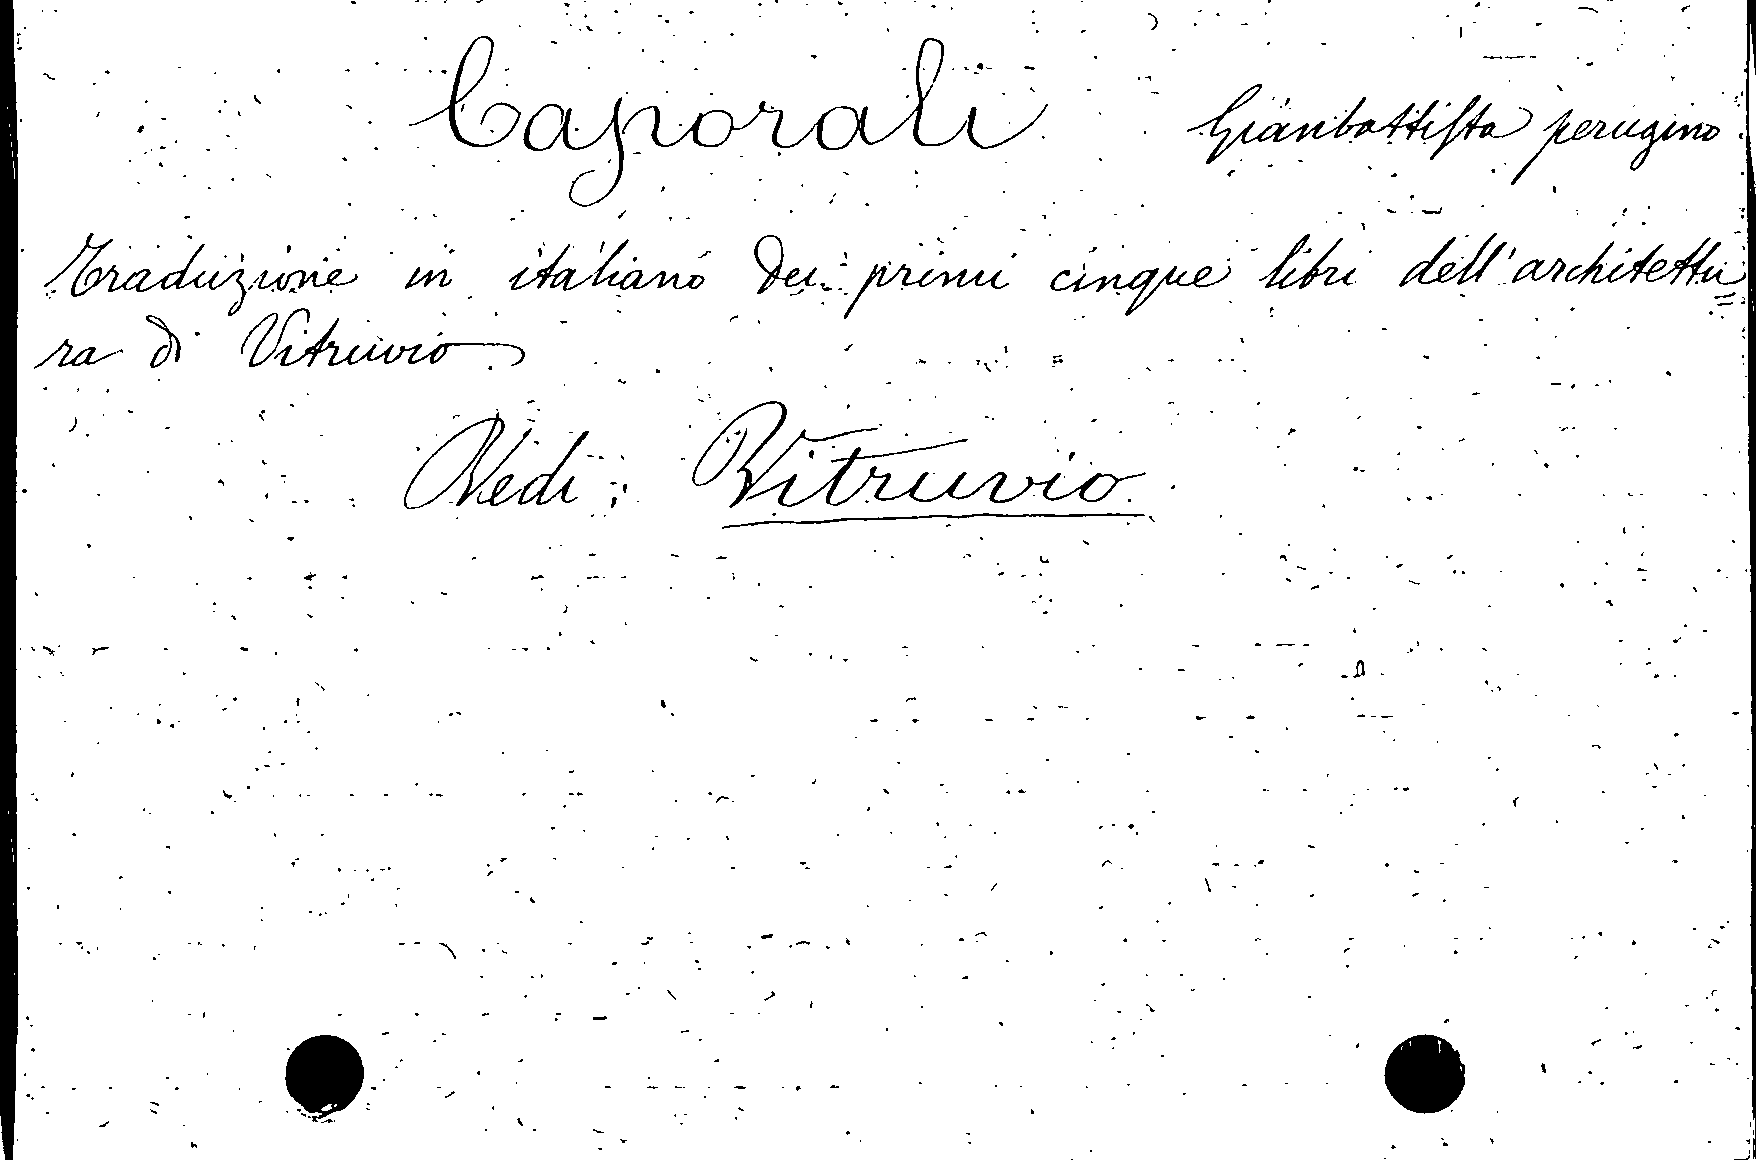 Caporali Gianbattista perugino
Traduzione in italiano dei primi cinque libri dell'architettu=
ra di Vitruvio
Vedi: Vitruvio